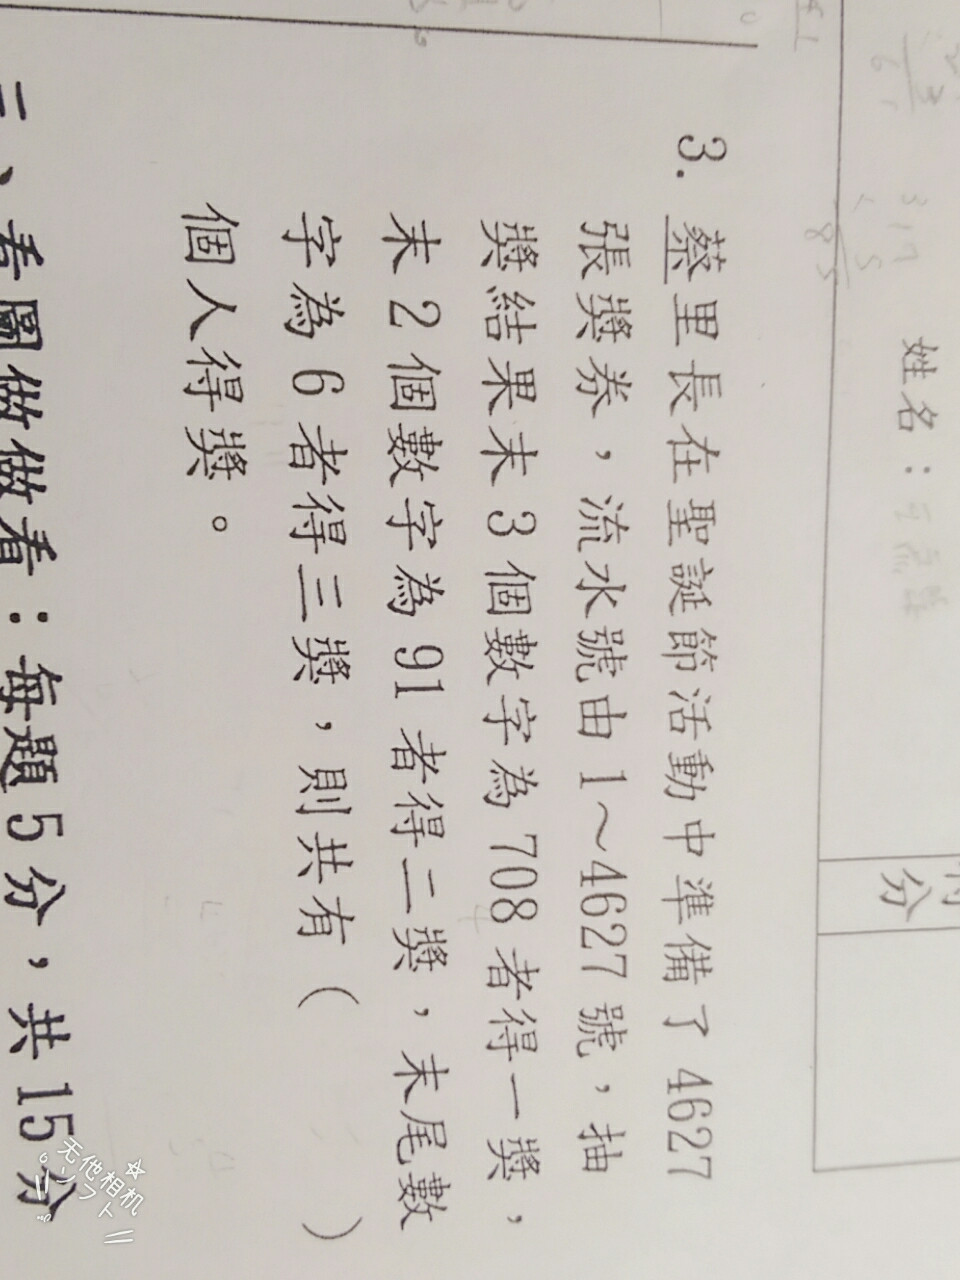 姓名：
分
3. 蔡里長在聖誕節活動中準備了 4627
張獎券，流水號由 1～4627 號，抽
獎結果末 3 個數字為 708 者得一獎，
末 2 個數字為 91 者得二獎，末尾數
字為 6 者得三獎，則共有（ ）
個人得獎。
二、看圖做做看：每題 5 分，共 15 分
无他相机